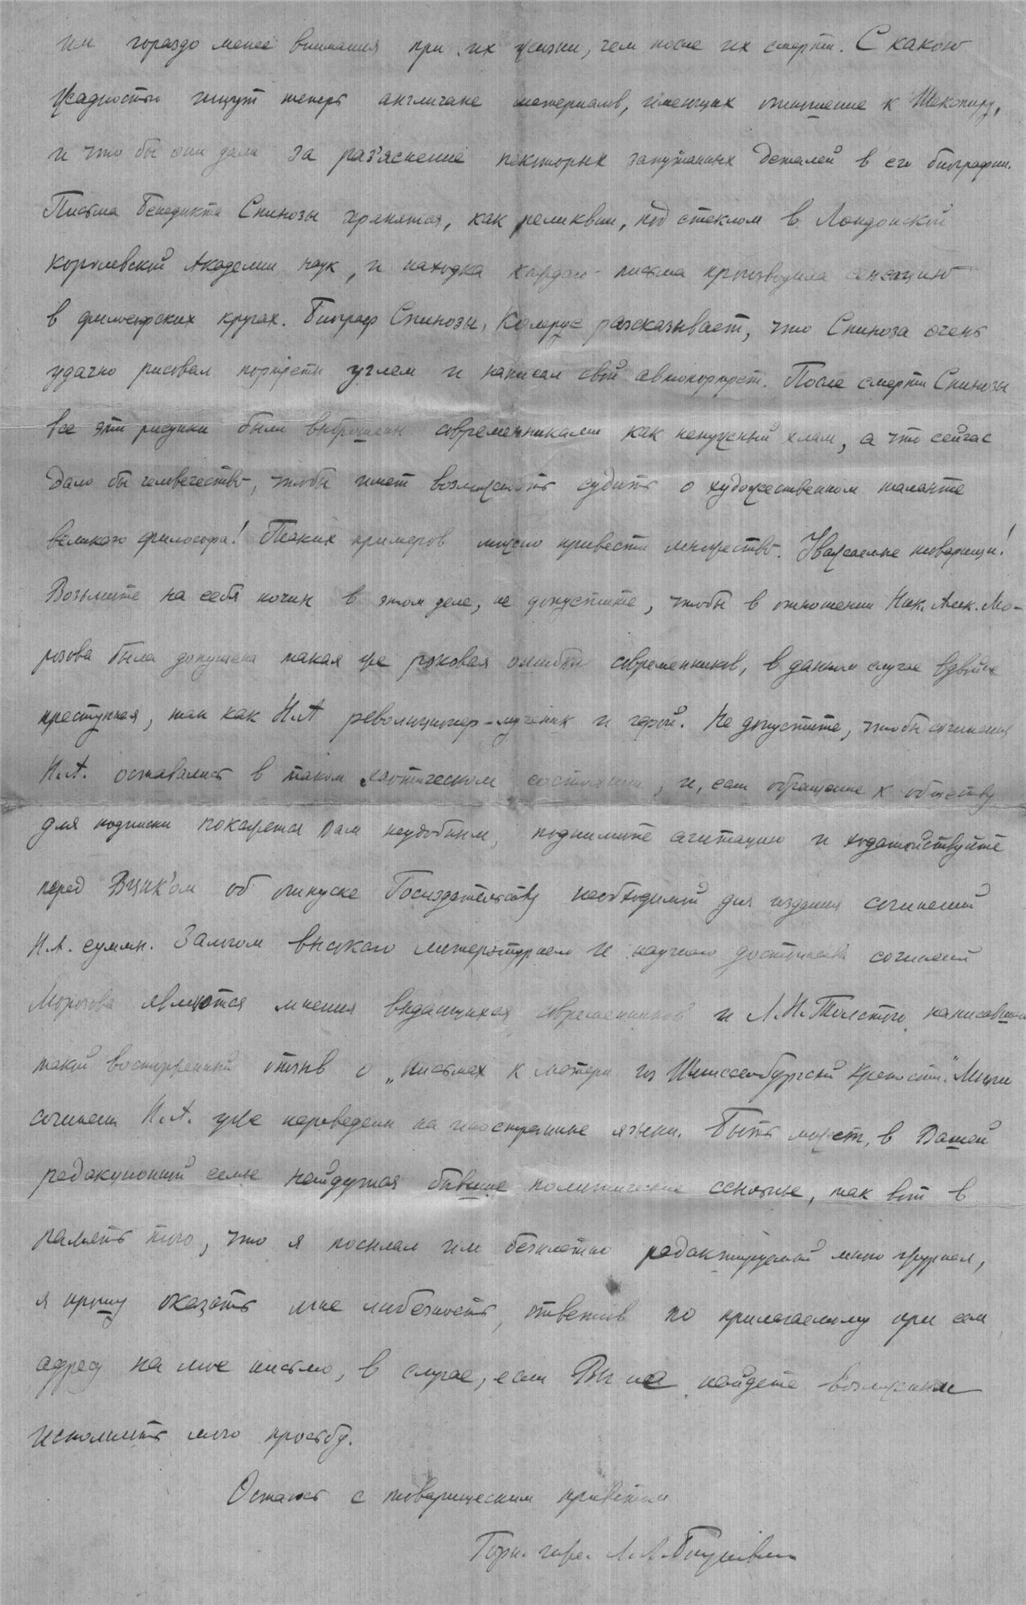 им гораздо менее внимания при их жизни, чем после их смерти. С какою
жадностью ищут теперь англичане материалов, имеющих отношение к Шекспиру,
и что бы они дали за раз'яснение некоторых запутанных деталей в его биографии.
Письма Бенедикта Спинозы хранятся, как реликвии, под стеклом в Лондонской
королевской Академии наук, и находка каждого письма производила сенсацию
в философских кругах. Биограф Спинозы, Колерус рассказывает, что Спиноза очень
удачно рисовал портреты углем и написал свой автопортрет. После смерти Спинозы
все эти рисунки были выброшены современниками как ненужный хлам, а что сейчас
дало бы человечество, чтобы иметь возможность судить о художественном таланте
великого философа! Таких примеров можно привести множество. Уважаемые товарищи!
Возьмите на себя почин в этом деле, не допустите, чтобы в отношении Ник. Алек. Мо-
розова была допущена такая же роковая ошибка современников, в данном случае вдвойне
преступная, так как Н.А революционер-мученик и герой. Не допустите, чтобы сочинения
Н.А. оставались в таком хаотическом состоянии, и, если обращение к обществу
для подписки покажется Вам неудобным, поднимите агитацию и ходатайствуйте
перед ВЦИК'ом об отпуске Госиздательству необходимой для издания сочинений
Н.А. суммы. Залогом высокого литературного и научного достоинства сочинений
Морозова являются мнения выдающихся современников и Л.Н. Толстого, написавшего
такой восторженный отзыв о „письмах к матери из Шлиссельбургской крепости". Многие
сочинения Н.А. уже переведены на иностранные языки. Быть может, в Вашей
редакционной семье найдутся бывшие политические ссыльные, так вот в
память того, что я посылал им бесплатно редактируемый мною журнал,
я прошу оказать мне любезность, ответив по прилагаемому при сем
адресу на мое письмо, в случае, если Вы не найдете возможным
исполнить мою просьбу.
Остаюсь с товарищеским приветом
Горн. инж. Л.Л.